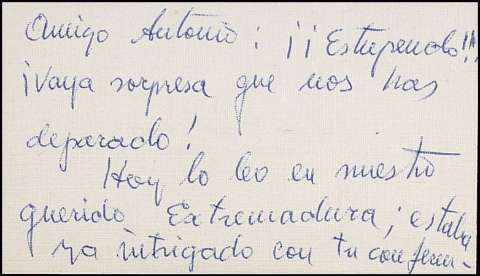 Amigo Antonio: ¡¡Estupendo!!
¡Vaya sorpresa que nos has
deparado!
Hoy lo leo en nuestro
querido Extremadura; estaba
ya intrigado con tu conferen-